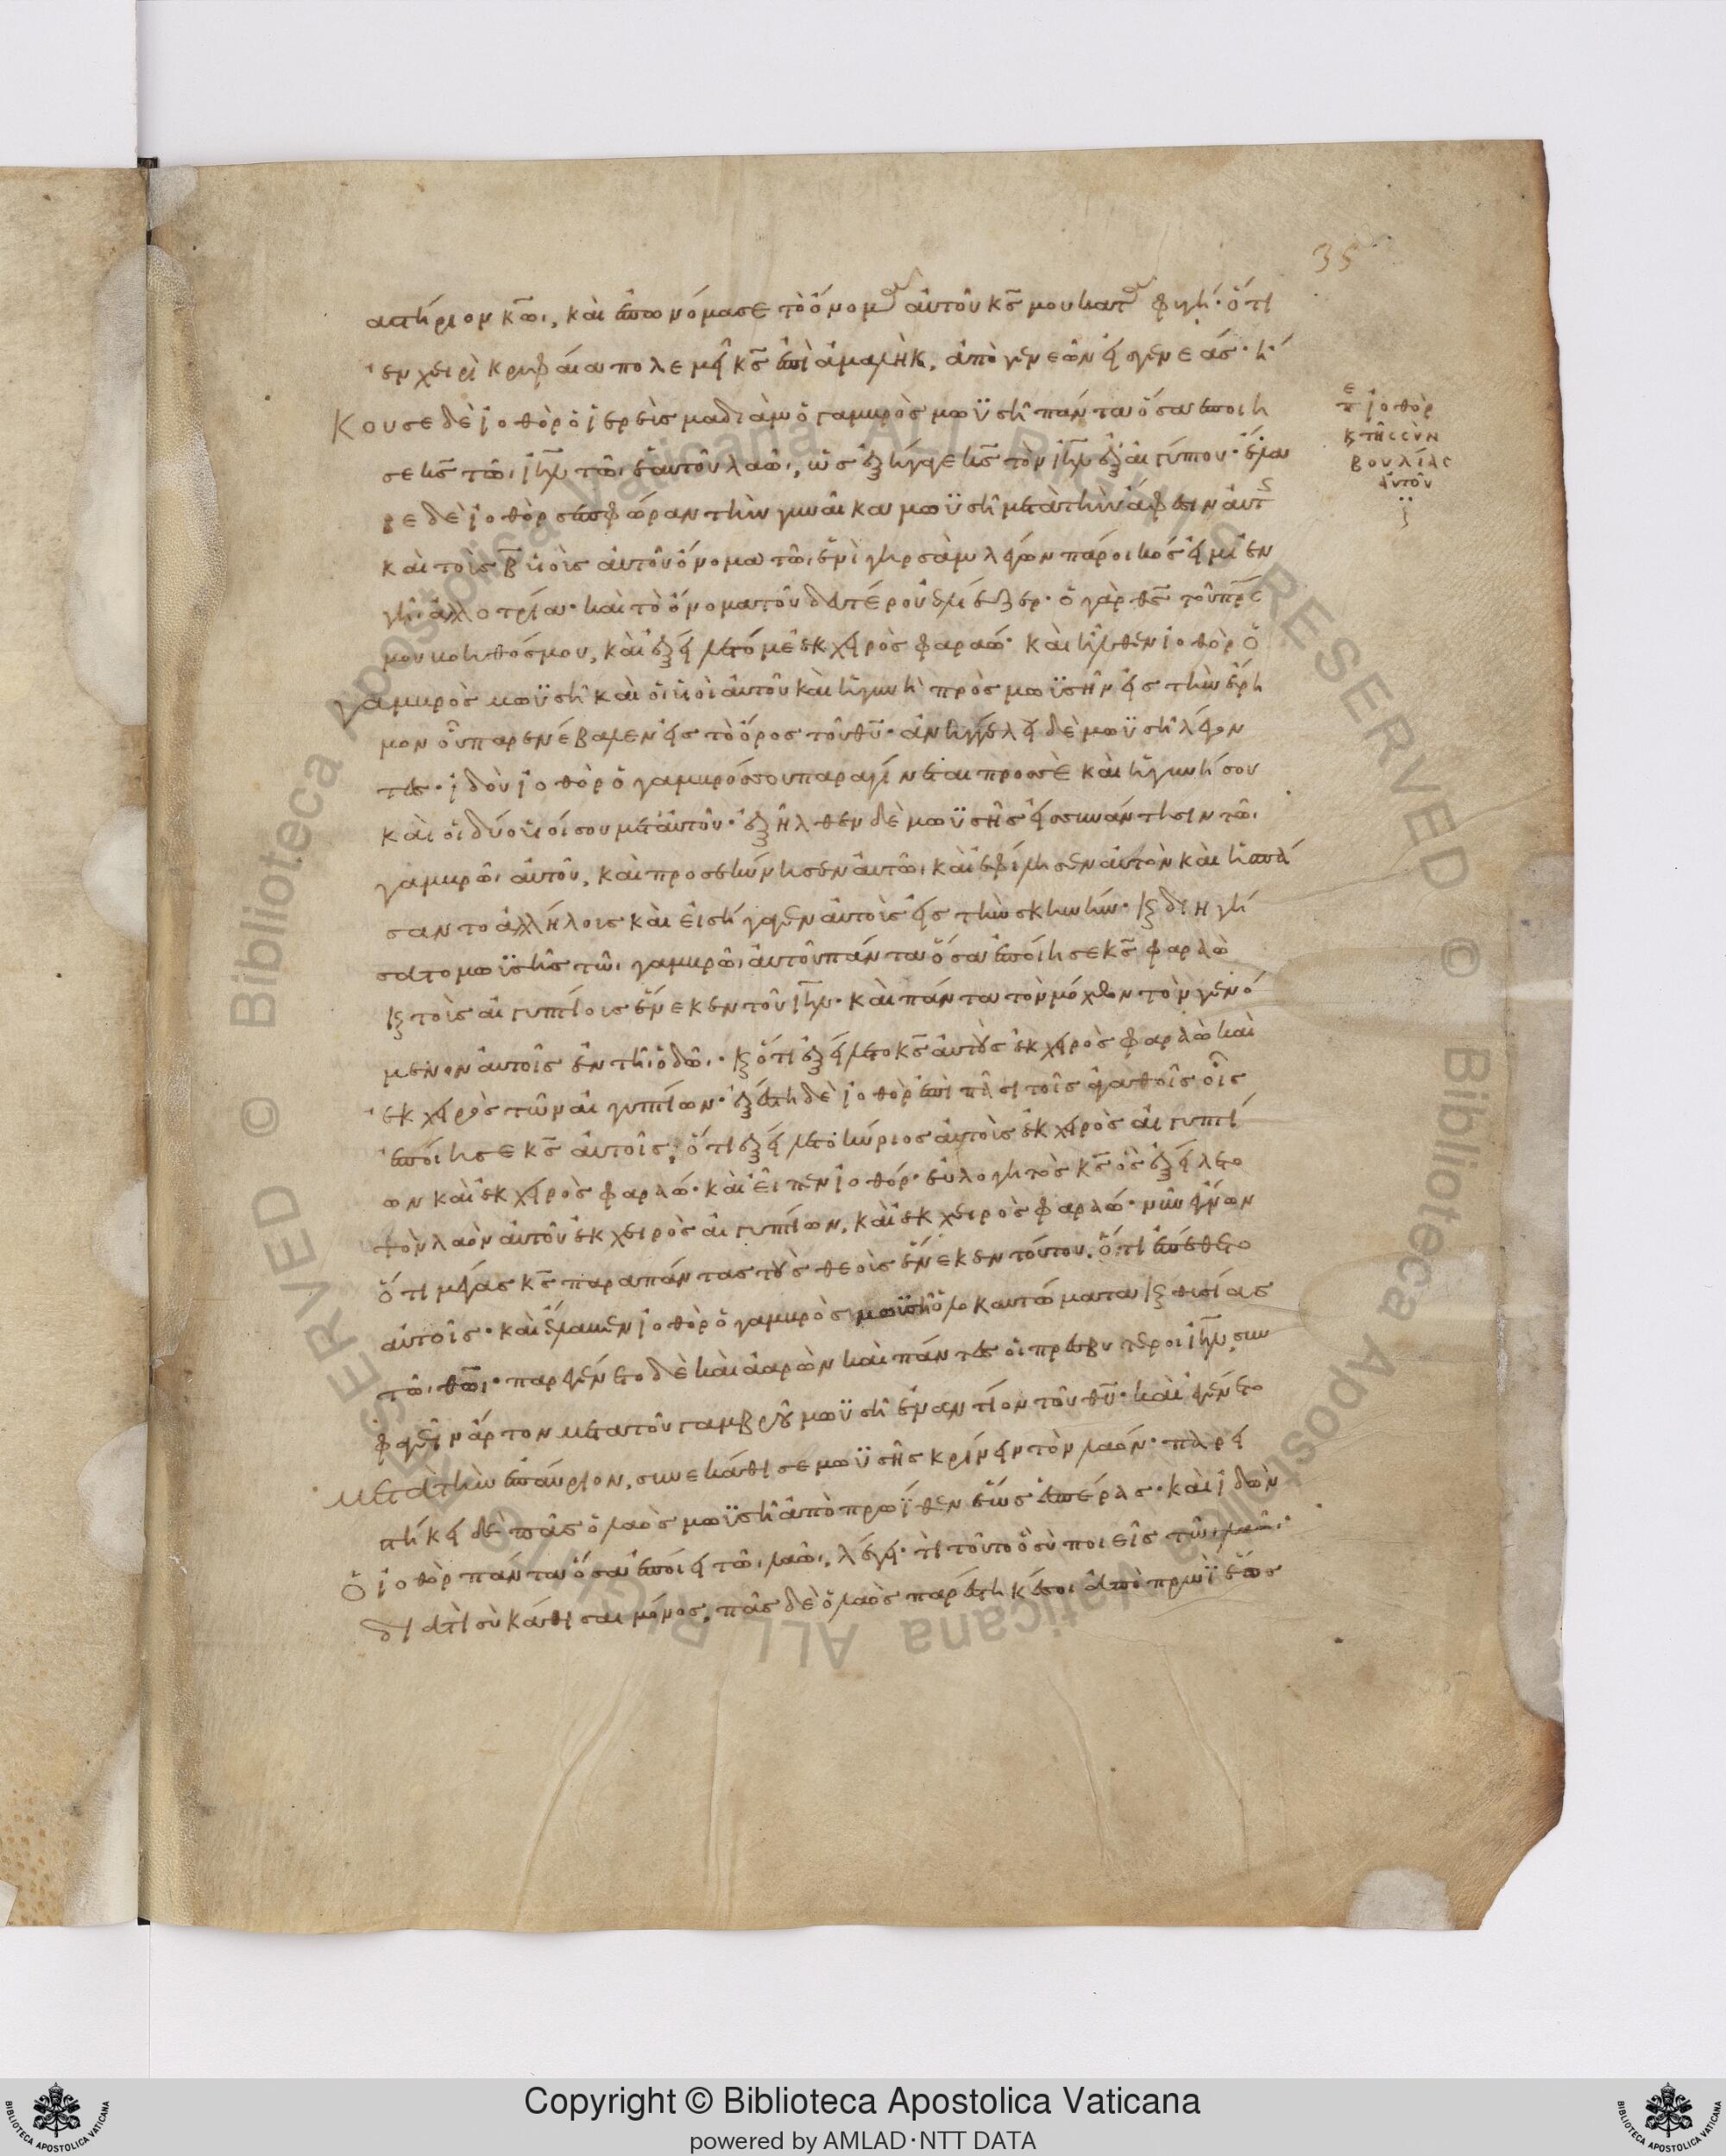 35
αστήριον κω̄, καὶ ἐπωνόμασε τὸ ὄνομα αὐτοῦ κς̄ μου καταφυγή· ὅτι
ἐν χειρὶ κρυφαία πολεμεῖ κς̄ ἐπὶ ἀμαλὴκ, ἀπὸ γενεῶν εἰς γενεάς· ἤ
κουσε δὲ ἰοθὸρ ὁ ἱερεὺς μαδιὰμ ὁ γαμβρὸς μωϋσῆ πάντα ὅσα ἐποίη
σε κς̄ τῶ ιη̄λ τῶ ἑαυτοῦ λαῶ, ὡς ἐξήγαγε κς̄ τὸν ιη̄λ ἐξ αἰγύπτου· ἔλα
βε δὲ ἰοθὸρ σεπφώραν τὴν γυναῖκα μωϋσῆ μετὰ τὴν ἄφεσιν αὐτῆς
καὶ τοὺς β̄ υἱοὺς αὐτοῦ ὄνομα τῶ ἑνὶ γηρσὰμ λέγων πάροικός εἰμι ἐν
γῆ ἀλλοτρία· καὶ τὸ ὄνομα τοῦ δευτέρου ἐλιέζερ· ὁ γὰρ θς̄ τοῦ πρς̄
μου βοηθός μου, καὶ ἐξείλετό με ἐκ χειρὸς φαραώ· καὶ ἦλθεν ἰοθὸρ ὁ
γαμβρὸς μωϋσῆ καὶ οἱ υἱοὶ αὐτοῦ καὶ ἡ γυνὴ πρὸς μωϋσῆν εἰς τὴν ἔρη
μον οὗ παρενέβαλεν εἰς τὸ ὄρος τοῦ θῡ· ἀνηγγέλη δὲ μωϋσῆ λέγον
τες· ἰδοὺ ἰοθὸρ ὁ γαμβρός σου παραγίνεται προσσὲ καὶ ἡ γυνή σου
καὶ οἱ δύο υἱοί σου μετ αὐτοῦ· ἐξῆλθεν δὲ μωϋσῆς εἰς συνάντησιν τῶ
γαμβρῶ αὐτοῦ, καὶ προσεκύνησεν αὐτῶ καὶ ἐφίλησεν αὐτὸν καὶ ἠσπά
σαντο ἀλλήλοις καὶ εἰσήγαγεν αὐτοὺς εἰς τὴν σκηνήν· κ διηγή
σατο μωϋσῆς τῶ γαμβρῶ αὐτοῦ πάντα ὅσα ἐποίησε κς̄ φαραὼ
κ τοῖς αἰγυπτίοις ἕνεκεν τοῦ ιη̄λ· καὶ πάντα τὸν μόχθον τὸν γενό
μενον αὐτοῖς ἐν τῆ ὁδῶ· κ ὅτι ἐξείλετο κς̄ αὐτοὺς ἐκ χειρὸς φαραὼ καὶ
ἐκ χειρὸς τῶν αἰγυπτίων· ἐξέστη δὲ ἰοθὸρ ἐπὶ πᾶσι τοῖς ἀγαθοῖς οἷς
ἐποίησε κς̄ αὐτοῖς, ὅτι ἐξείλετο κύριος αὐτοὺς ἐκ χειρὸς αἰγυπτί
ων καὶ ἐκ χειρὸς φαραώ· καὶ εἶπεν ἰοθόρ· εὐλογητὸς κς̄ ὃς ἐξείλετο
τὸν λαὸν αὐτοῦ ἐκ χειρὸς αἰγυπτίων, καὶ ἐκ χειρὸς φαραώ· νῦν ἔγνων
ὅτι μέγας κς̄ παρα πάντας τοὺς θεοὺς ἕνεκεν τούτου, ὅτι ἐπέθετο
αὐτοῖς· καὶ ἔλαβεν ἰοθὸρ ὁ γαμβρὸς μωϋσῆ ὁλοκαυτώματα κ θυσίας
τῶ θω̄· παρεγένετο δὲ καὶ ἀαρὼν καὶ πάντες οἱ πρεσβύτεροι ιη̄λ, συν
φαγεῖν ἄρτον μετα τοῦ γαμβροῦ μωϋσῆ ἐναντίον τοῦ θῡ· καὶ ἐγένετο
μετα τὴν ἐπαύριον, συνεκάθισε μωϋσῆς κρίνειν τὸν λαόν· παρει
στήκει δὲ πᾶς ὁ λαὸς μωϋσῆ ἀπὸ πρωΐθεν ἕως ἑσπέρας· καὶ ἰδὼν
ὁ ἰοθὸρ πάντα ὅσα ἐποίει τῶ λαῶ, λέγει· τί τοῦτο ὃ σὺ ποιεῖς τῶ λαῶ·
διατί σὺ κάθισαι μόνος, πᾶς δὲ ὁ λαὸς παρέστηκέ σοι ἀπὸ πρωῒ ἕως
πε ἰοθὸρ
κ τῆς συν
βουλίας
αὐτοῦ
Copyright © Biblioteca Apostolica Vaticana
powered by AMLAD·NTT DATA